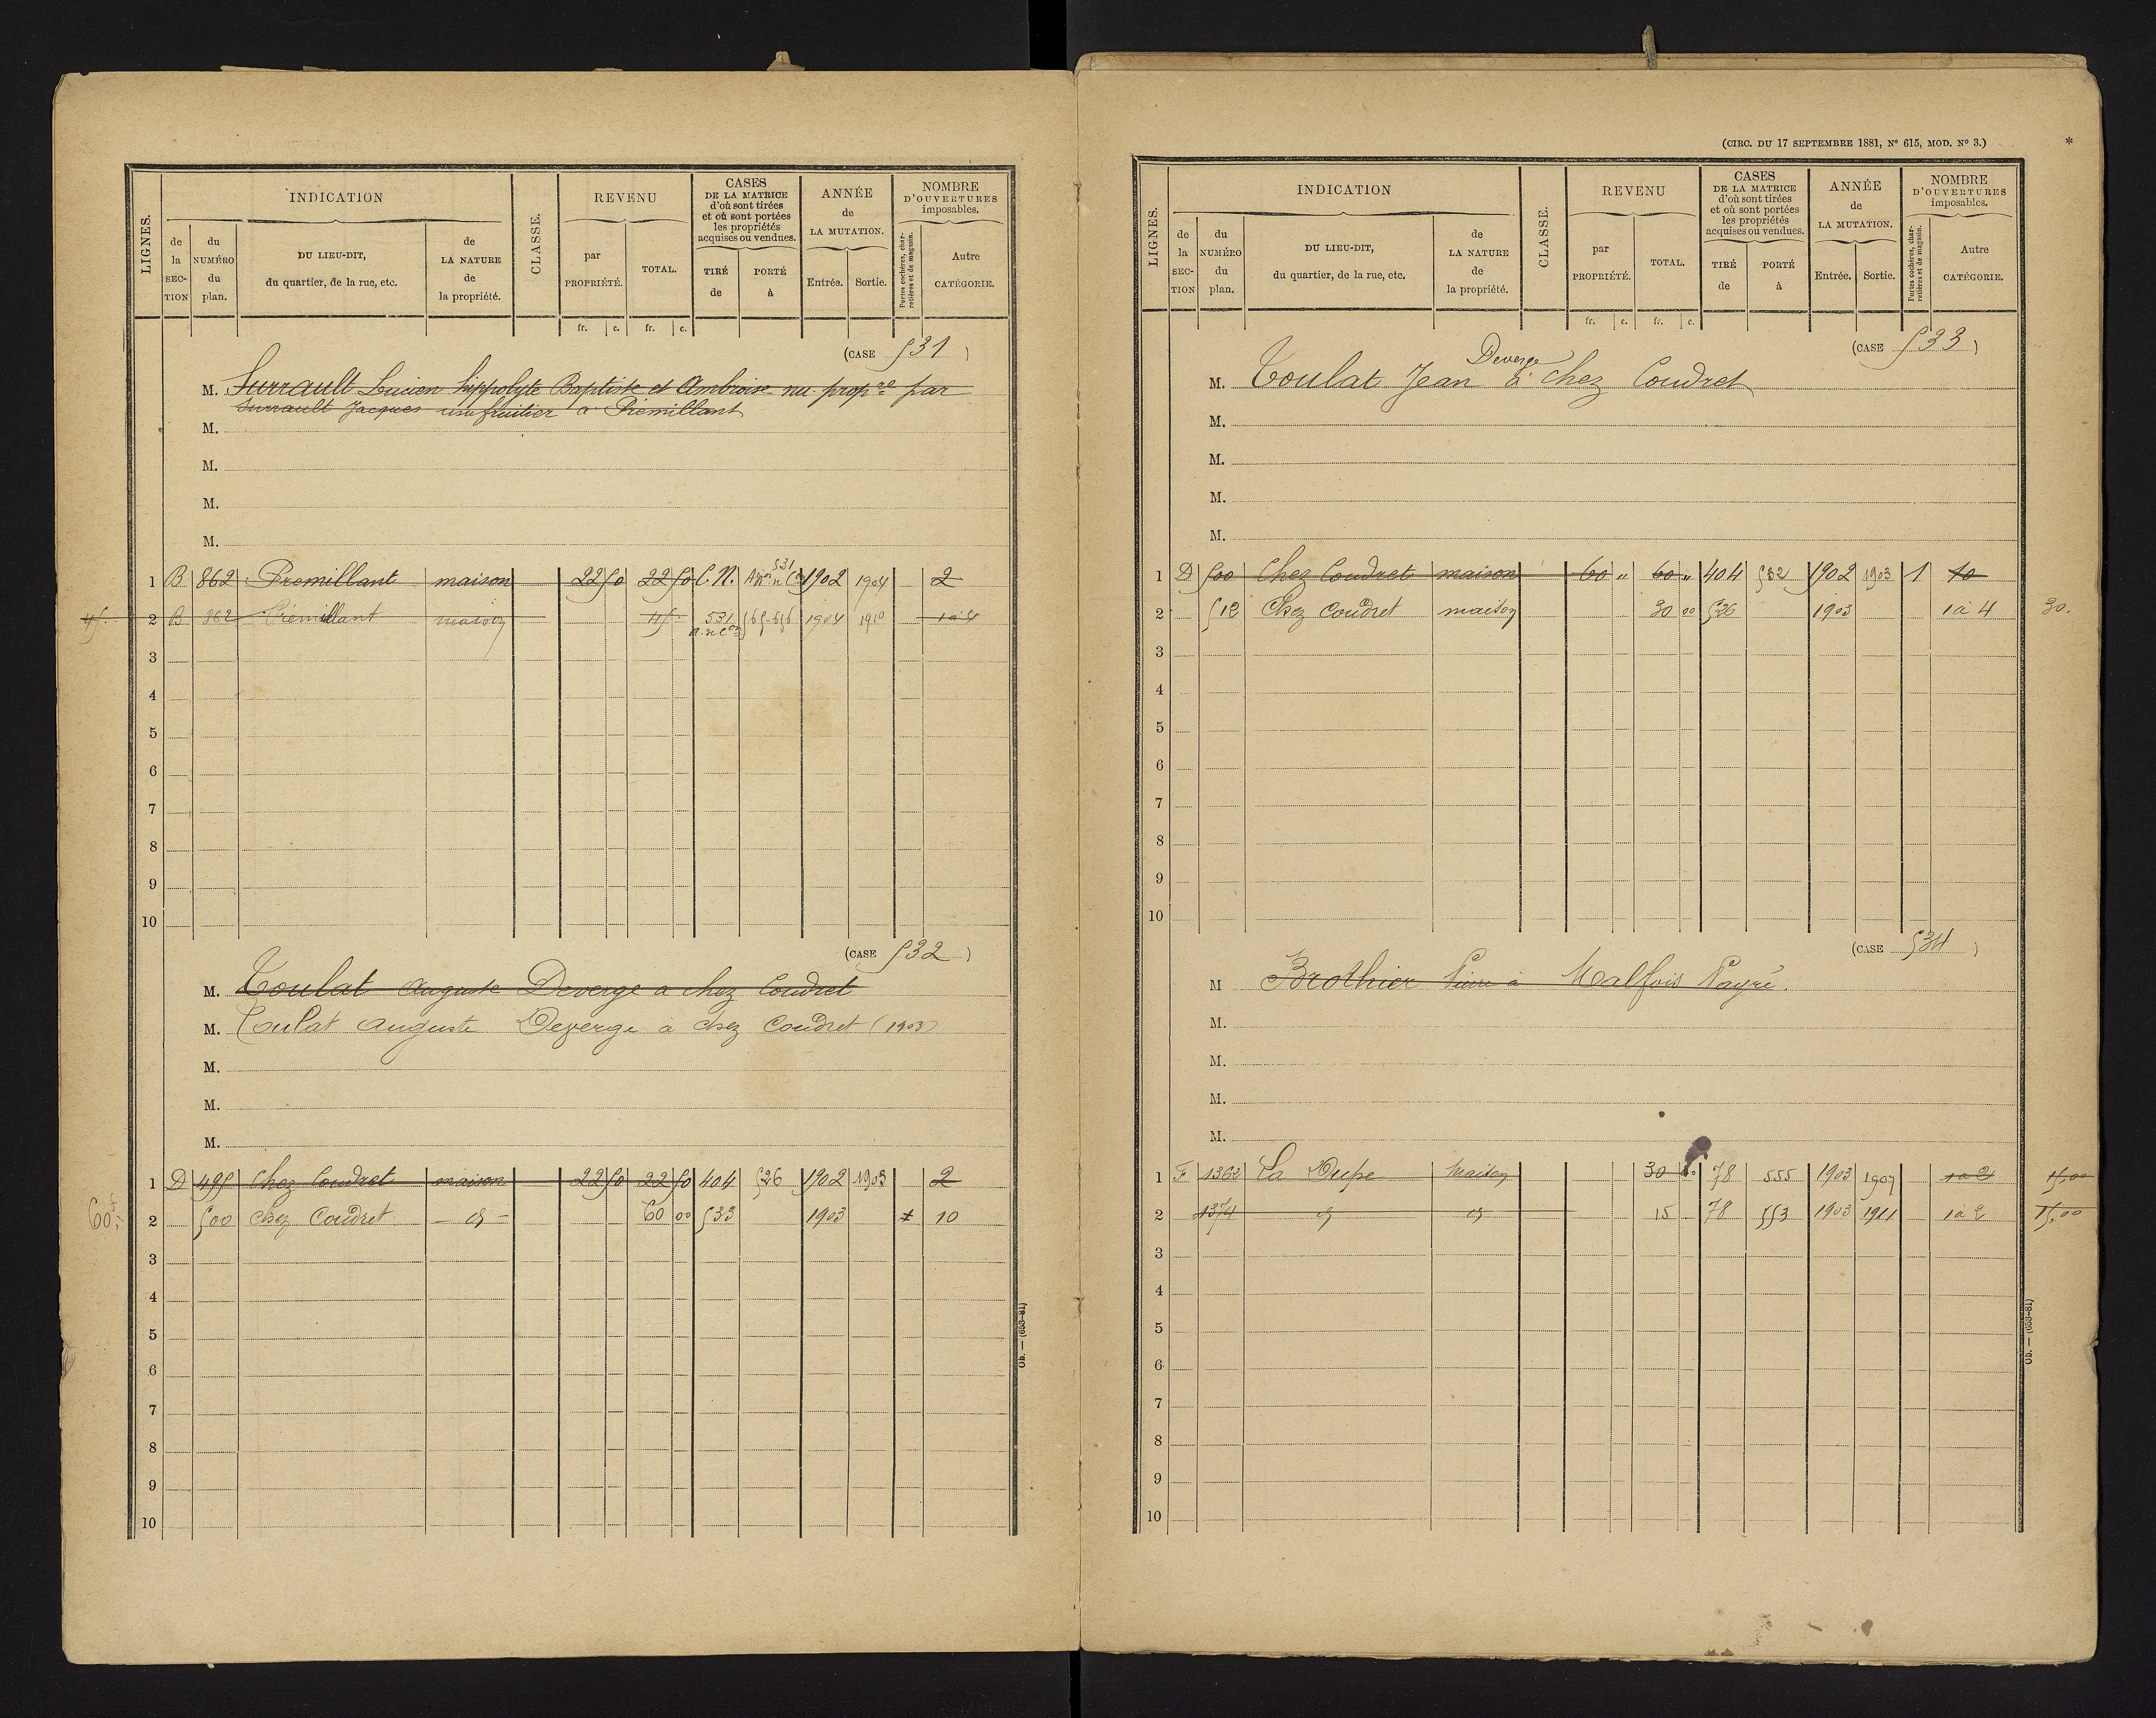 INDICATION
REVENU
CASES DE LA MATRICE d'où sont tirées et où sont portées les propriétés acquises ou vendues.
ANNÉE de LA MUTATION.
NOMBRE D'OUVERTURES imposables.
LIGNES.
de la SECTION
du NUMÉRO du plan.
DU LIEU-DIT, du quartier, de la rue, etc.
de LA NATURE de la propriété.
CLASSE.
par PROPRIÉTÉ.
TOTAL.
TIRÉ de
PORTÉ à
Entrée.
Sortie.
Portes cochères, charretières et de magasin.
Autre CATÉGORIE.
fr. c. fr. c.
(CASE 531)
M. Surrault Lucien hippolyte Baptiste et Ambroise nu propre par
Surrault Jacques usufruitier à Prémillant
M.
M.
M.
M.
1 B 862 Premillant maison 22 50 22 50 C.N. 531 1902 1904 2
45. 2 B 862 Prémillant maison 45. 531 565-656 1904 1910 1 à 4
3
4
5
6
7
8
9
10
(CASE 532)
M. Toulat Auguste Deverge a chez Coudret
M. Toulat Auguste Deverge à chez Coudret (1903)
M.
M.
M.
1 D 495 Chez Coudret maison 22 50 22 50 404 526 1902 1903 2
60 2 500 Chez Coudret - d - 60 00 533 1903 10
3
4
5
6
7
8
9
10
Ob. — (653-81)
(CIRC. DU 17 SEPTEMBRE 1881, N° 615, MOD. N° 3.)
*
INDICATION
REVENU
CASES DE LA MATRICE d'où sont tirées et où sont portées les propriétés acquises ou vendues.
ANNÉE de LA MUTATION.
NOMBRE D'OUVERTURES imposables.
LIGNES.
de la SECTION
du NUMÉRO du plan.
DU LIEU-DIT, du quartier, de la rue, etc.
de LA NATURE de la propriété.
CLASSE.
par PROPRIÉTÉ.
TOTAL.
TIRÉ de
PORTÉ à
Entrée.
Sortie.
Portes cochères, charretières et de magasin.
Autre CATÉGORIE.
fr. c. fr. c.
(CASE 533)
Deverge
M. Toulat Jean à chez Coudret
M.
M.
M.
M.
1 D 500 Chez Coudret maison 60 " 60 " 404 532 1902 1903 1 10
2 512 Chez Coudret maison 30 00 526 1903 1 à 4 30.
3
4
5
6
7
8
9
10
(CASE 534)
M Brothier Pierre à Malfois Payré.
M.
M.
M.
M.
1 F 1362 La Dupe maison 30 78 555 1903 1907 1 à 2 15,00
2 1374 d d 15 78 553 1903 1911 1 à 2 15,00
3
4
5
6
7
8
9
10
Ob. — (653-81)